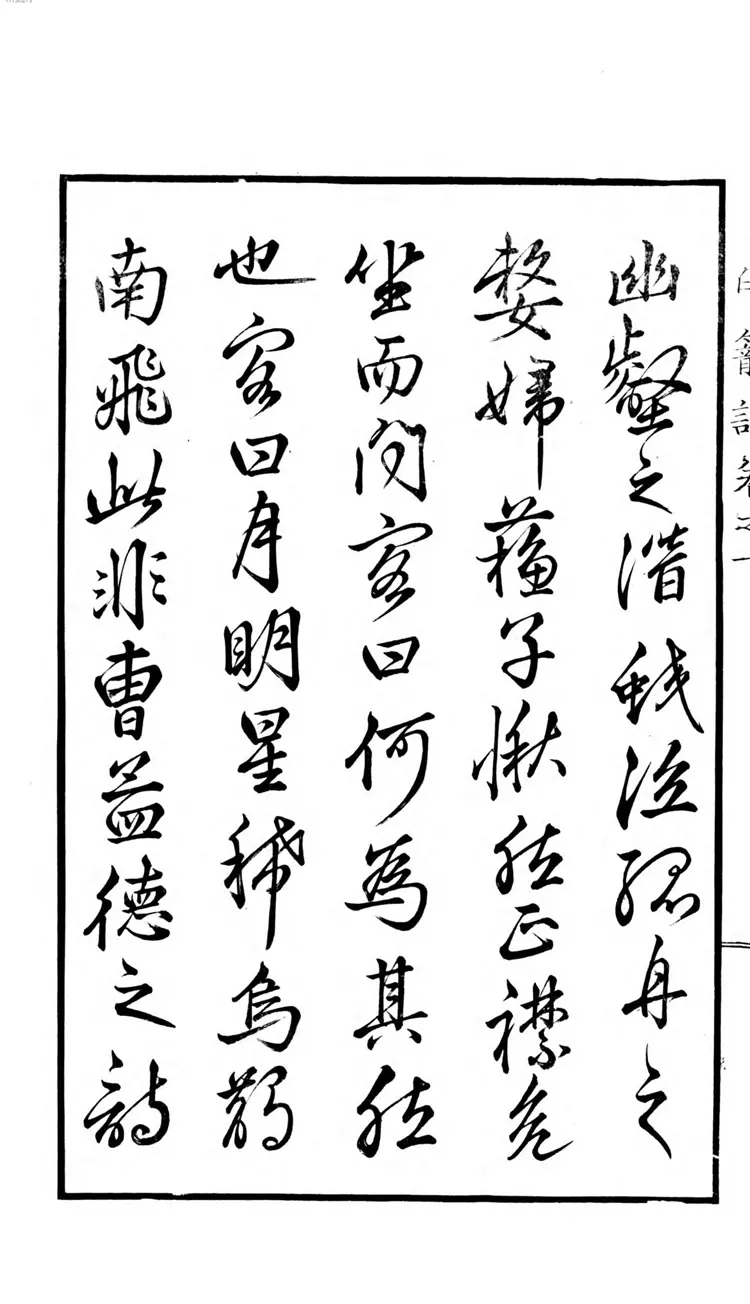 幽壑之潛蛟泣孤舟之
嫠婦蘇子愀然正襟危
坐而問客曰何為其然
也客曰月明星稀烏鵲
南飛此非曹孟德之詩